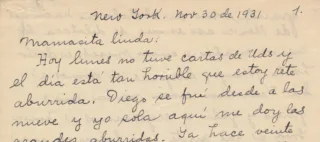 New York. Nov 30 de 1931
1.
Mamasita linda:
Hoy lunes no tuve cartas de Uds y
el día está tan horrible que estoy rete
aburrida. Diego se fué desde a las
nueve y yo sola aquí me doy las
grandes aburridas. Ya hace veinte